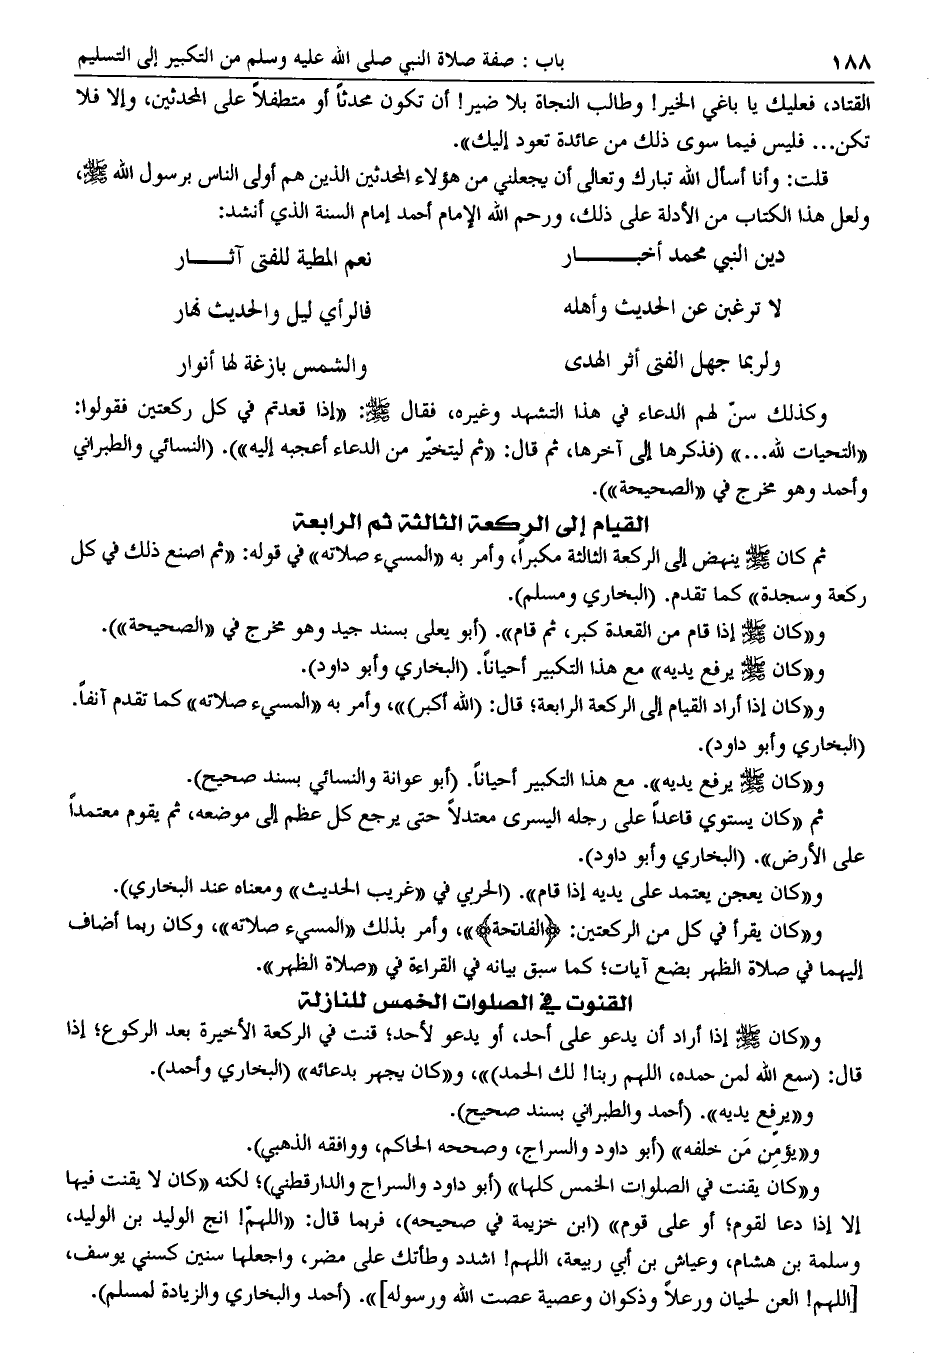 ١٨٨ باب : صفة صلاة النبي صلى الله عليه وسلم من التكبير إلى التسليم
القتاد، فعليك يا باغي الخير! وطالب النجاة بلا ضير! أن تكون محدثاً أو متطفلاً على المحدثين، وإلا فلا
تكن... فليس فيما سوى ذلك من عائدة تعود إليك».
قلت: وأنا أسأل الله تبارك وتعالى أن يجعلني من هؤلاء المحدثين الذين هم أولى الناس برسول الله ﷺ،
ولعل هذا الكتاب من الأدلة على ذلك، ورحم الله الإمام أحمد إمام السنة الذي أنشد:
دين النبي محمد أخبـــــار نعم المطية للفتى آثـــار
لا ترغبن عن الحديث وأهله فالرأي ليل والحديث نهار
ولربما جهل الفتى أثر الهدى والشمس بازغة لها أنوار
وكذلك سنّ لهم الدعاء في هذا التشهد وغيره، فقال ﷺ: «إذا قعدتم في كل ركعتين فقولوا:
«التحيات لله...» (فذكرها إلى آخرها، ثم قال: «ثم ليتخيّر من الدعاء أعجبه إليه»). (النسائي والطبراني
وأحمد وهو مخرج في «الصحيحة»).
القيام إلى الركعة الثالثة ثم الرابعة
ثم كان ﷺ ينهض إلى الركعة الثالثة مكبراً، وأمر به «المسيء صلاته» في قوله: «ثم اصنع ذلك في كل
ركعة وسجدة» كما تقدم. (البخاري ومسلم).
و«كان ﷺ إذا قام من القعدة كبر، ثم قام». (أبو يعلى بسند جيد وهو مخرج في «الصحيحة»).
و«كان ﷺ يرفع يديه» مع هذا التكبير أحياناً. (البخاري وأبو داود).
و«كان إذا أراد القيام إلى الركعة الرابعة؛ قال: (الله أكبر)»، وأمر به «المسيء صلاته» كما تقدم آنفاً.
(البخاري وأبو داود).
و«كان ﷺ يرفع يديه». مع هذا التكبير أحياناً. (أبو عوانة والنسائي بسند صحيح).
ثم «كان يستوي قاعداً على رجله اليسرى معتدلاً حتى يرجع كل عظم إلى موضعه، ثم يقوم معتمداً
على الأرض». (البخاري وأبو داود).
و«كان يعجن يعتمد على يديه إذا قام». (الحربي في «غريب الحديث» ومعناه عند البخاري).
و«كان يقرأ في كل من الركعتين: ﴿الفاتحة﴾»، وأمر بذلك «المسيء صلاته»، وكان ربما أضاف
إليهما في صلاة الظهر بضع آيات؛ كما سبق بيانه في القراءة في «صلاة الظهر».
القنوت في الصلوات الخمس للنازلة
و«كان ﷺ إذا أراد أن يدعو على أحد، أو يدعو لأحد؛ قنت في الركعة الأخيرة بعد الركوع؛ إذا
قال: (سمع الله لمن حمده، اللهم ربنا! لك الحمد)»، و«كان يجهر بدعائه» (البخاري وأحمد).
و«يرفع يديه». (أحمد والطبراني بسند صحيح).
و«يؤمِّن مَن خلفه» (أبو داود والسراج، وصححه الحاكم، ووافقه الذهبي).
و«كان يقنت في الصلوات الخمس كلها» (أبو داود والسراج والدارقطني)؛ لكنه «كان لا يقنت فيها
إلا إذا دعا لقوم؛ أو على قوم» (ابن خزيمة في صحيحه)، فربما قال: «اللهمّ! انج الوليد بن الوليد،
وسلمة بن هشام، وعياش بن أبي ربيعة، اللهم! اشدد وطأتك على مضر، واجعلها سنين كسني يوسف،
[اللهم! العن لحيان ورعلاً وذكوان وعصية عصت الله ورسوله]». (أحمد والبخاري والزيادة لمسلم).